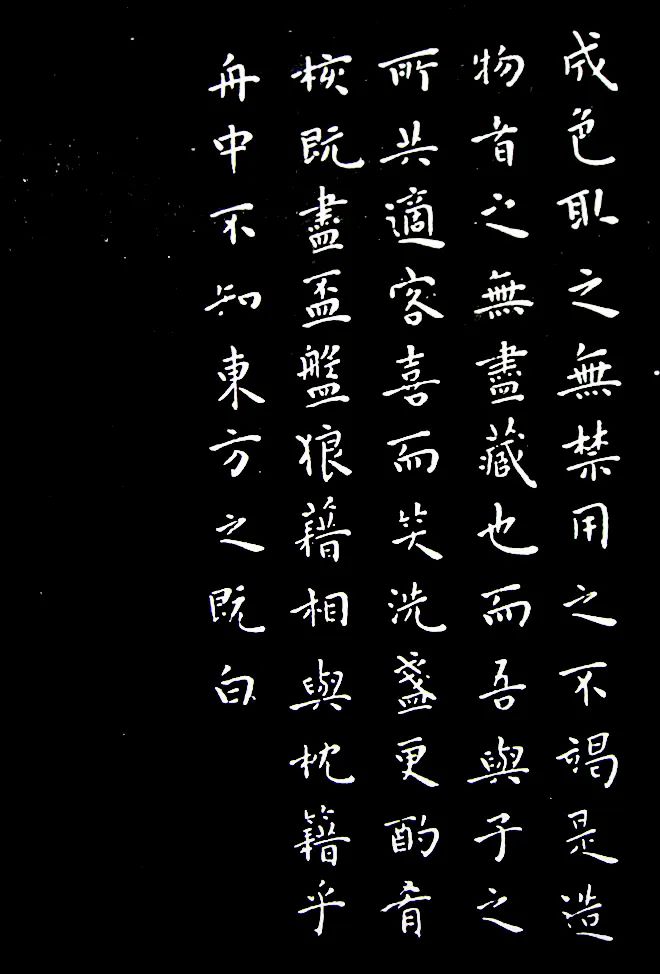 成色取之無禁用之不竭是造
物者之無盡藏也而吾與子之
所共適客喜而笑洗盞更酌肴
核既盡盃盤狼藉相與枕籍乎
舟中不知東方之既白